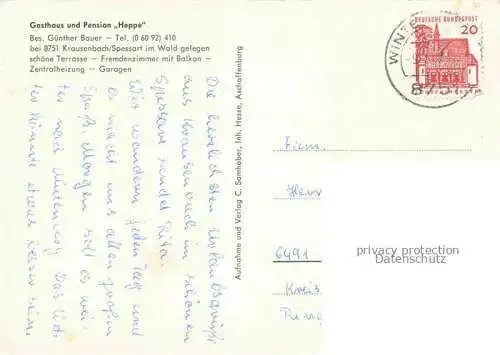 Gasthaus und Pension „Heppe"
Bes. Günther Bauer – Tel. (0 60 92) 410
bei 8751 Krausenbach/Spessart im Wald gelegen
schöne Terrasse – Fremdenzimmer mit Balkon –
Zentralheizung – Garagen
Die herzlichsten Urlaubsgrüße
aus Krausenbach im schönen
Spessart sendet Rita.
Wir wandern jeden Tag und
es macht uns allen großen
Spaß. Morgen geht es wei-
ter nach Miltenberg. Das Wet-
ter könnte etwas besser sein.
Aufnahme und Verlag C. Samhaber, Inh. Hesse, Aschaffenburg
DEUTSCHE BUNDESPOST
20
WINTE
8751
Fam.
6491
Kreis
privacy protection
Datenschutz